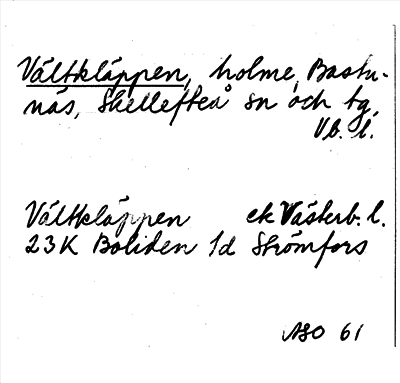 Vältkläppen, holme, Bastu-
näs, Skellefteå sn och tg,
Vb. l.
Vältkläppen ek Västerb. l.
23K Boliden 1d Strömfors
ASO 61